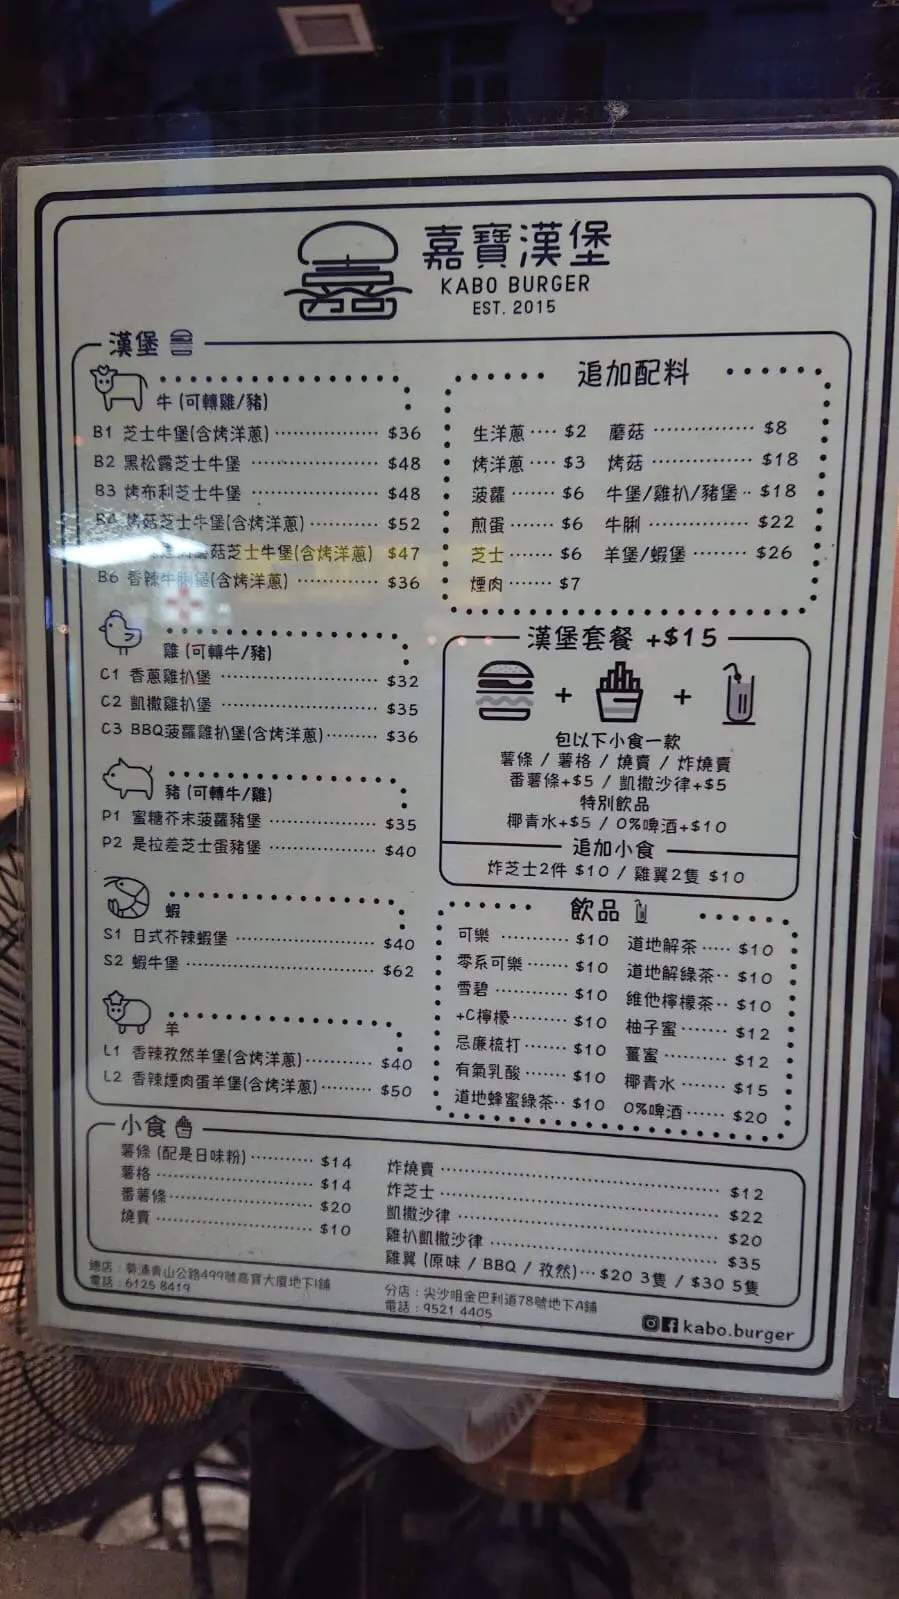 嘉寶漢堡
KABO BURGER
EST. 2015
漢堡
牛 (可轉雞/豬)
B1 芝士牛堡(含烤洋蔥) $36
B2 黑松露芝士牛堡 $48
B3 烤布利芝士牛堡 $48
B4 烤菇芝士牛堡(含烤洋蔥) $52
蘑菇芝士牛堡(含烤洋蔥) $47
B6 香辣牛脷堡(含烤洋蔥) $36
雞 (可轉牛/豬)
C1 香蔥雞扒堡 $32
C2 凱撒雞扒堡 $35
C3 BBQ菠蘿雞扒堡(含烤洋蔥) $36
豬 (可轉牛/雞)
P1 蜜糖芥末菠蘿豬堡 $35
P2 是拉差芝士蛋豬堡 $40
蝦
S1 日式芥辣蝦堡 $40
S2 蝦牛堡 $62
羊
L1 香辣孜然羊堡(含烤洋蔥) $40
L2 香辣煙肉蛋羊堡(含烤洋蔥) $50
追加配料
生洋蔥 $2 蘑菇 $8
烤洋蔥 $3 烤菇 $18
菠蘿 $6 牛堡/雞扒/豬堡 $18
煎蛋 $6 牛脷 $22
芝士 $6 羊堡/蝦堡 $26
煙肉 $7
漢堡套餐 +$15
+ +
包以下小食一款
薯條 / 薯格 / 燒賣 / 炸燒賣
番薯條+$5 / 凱撒沙律+$5
特別飲品
椰青水+$5 / 0%啤酒+$10
追加小食
炸芝士2件 $10 / 雞翼2隻 $10
飲品
可樂 $10 道地解茶 $10
零系可樂 $10 道地解綠茶 $10
雪碧 $10 維他檸檬茶 $10
+C檸檬 $10 柚子蜜 $12
忌廉梳打 $10 薑蜜 $12
有氣乳酸 $10 椰青水 $15
道地蜂蜜綠茶 $10 0%啤酒 $20
小食
薯條 (配是日味粉) $14
薯格 $14
番薯條 $20
燒賣 $10
炸燒賣 $12
炸芝士 $22
凱撒沙律 $20
雞扒凱撒沙律 $35
雞翼 (原味 / BBQ / 孜然) $20 3隻 / $30 5隻
總店 : 葵涌青山公路499號嘉寶大廈地下1舖
電話 : 6125 8419
分店 : 尖沙咀金巴利道78號地下A舖
電話 : 9521 4405
kabo.burger